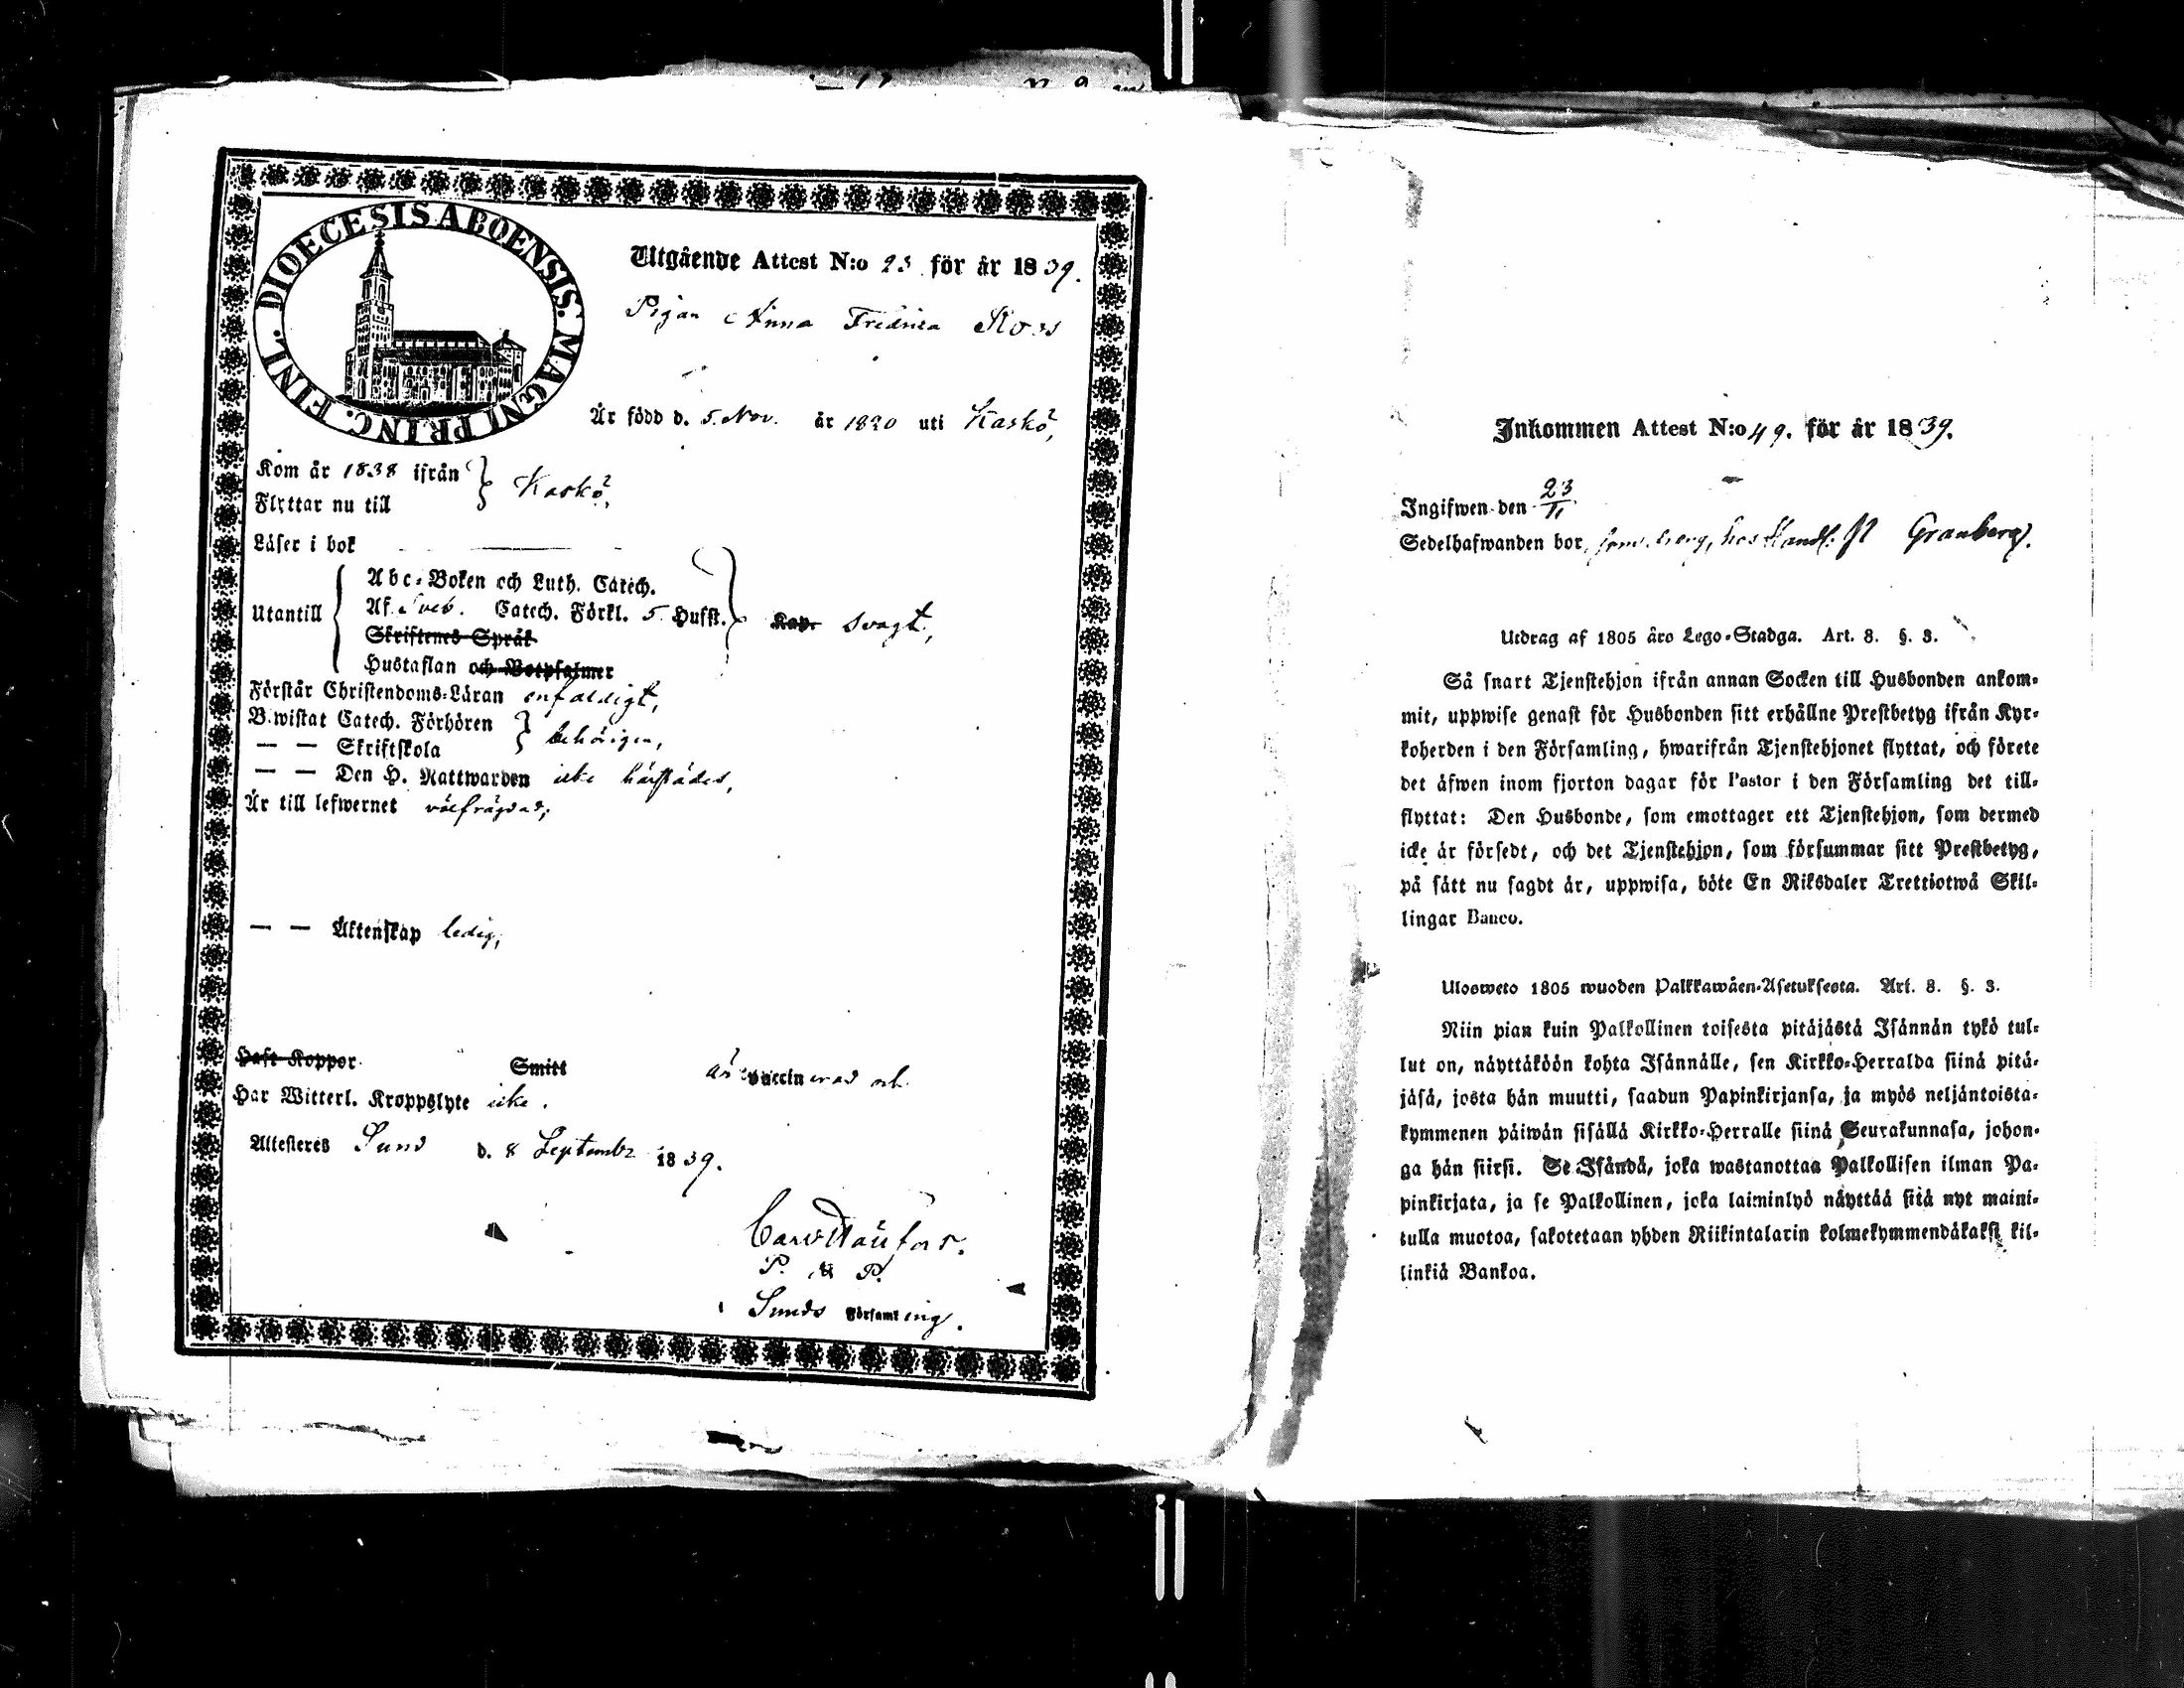 DIOECESIS ABOENSIS. MAGNI PRINC. FINL.
Utgående Attest N:o 23 för år 1839.
Pigan Anna Fredrica Ross
Är född d. 5. Nov. år 1820 uti Kaskö,
Kom år 1838 ifrån
Flyttar nu till
Kaskö,
Läser i bok
Utantill
Abc-Boken och Luth. Catech.
Af Sveb. Catech. Förkl. 5 Hufst.
Skriftenes Språk
Hustaflan och Botpsalmer
svagt,
Förstår Christendoms-Läran enfaldigt,
Bewistat Catech. Förhören
— — Skriftskola
behörigen,
— — Den H. Nattwarden icke härstädes,
Är till lefwernet välfrägdad,
— — Äktenskap ledig,
Haft Koppor Smitt är vaccinerad och
Har Witterl. Kroppslyte icke.
Attesteres Sund d. 8 September 1839.
P.
P.
Sunds Församling.
Inkommen Attest N:o 49. för år 1839.
Ingifwen den 23/11
Sedelhafwanden bor, hos Handl. Granberg.
Utdrag af 1805 åro Lego-Stadga. Art. 8. §. 3.
Så snart Tjenstehjon ifrån annan Socken till Husbonden ankom-
mit, uppwise genast för Husbonden sitt erhållne Prestbetyg ifrån Kyr-
koherden i den Församling, hwarifrån Tjenstehjonet flyttat, och förete
det äfwen inom fjorton dagar för Pastor i den Församling det till-
flyttat: Den Husbonde, som emottager ett Tjenstehjon, som dermed
icke är försedt, och det Tjenstehjon, som försummar sitt Prestbetyg,
på sätt nu sagdt är, uppwisa, böte En Riksdaler Trettiotwå Skil-
lingar Banco.
Ulosweto 1805 wuoden Palkkawäen-Asetuksesta. Art. 8. §. 3.
Niin pian kuin Palkollinen toisesta pitäjästä Isännän tykö tul-
lut on, näyttäköön kohta Isännälle, sen Kirkko-Herralda siinä pitä-
jäsä, josta hän muutti, saadun Papinkirjansa, ja myös neljäntoista-
kymmenen päiwän sisällä Kirkko-Herralle siinä Seurakunnasa, johon-
ga hän siirsi. Se Isändä, joka wastanottaa Palkollisen ilman Pa-
pinkirjata, ja se Palkollinen, joka laiminlyö näyttää sitä nyt maini-
tulla muotoa, sakotetaan yhden Riikintalarin kolmekymmendäkaksi kil-
linkiä Bankoa.